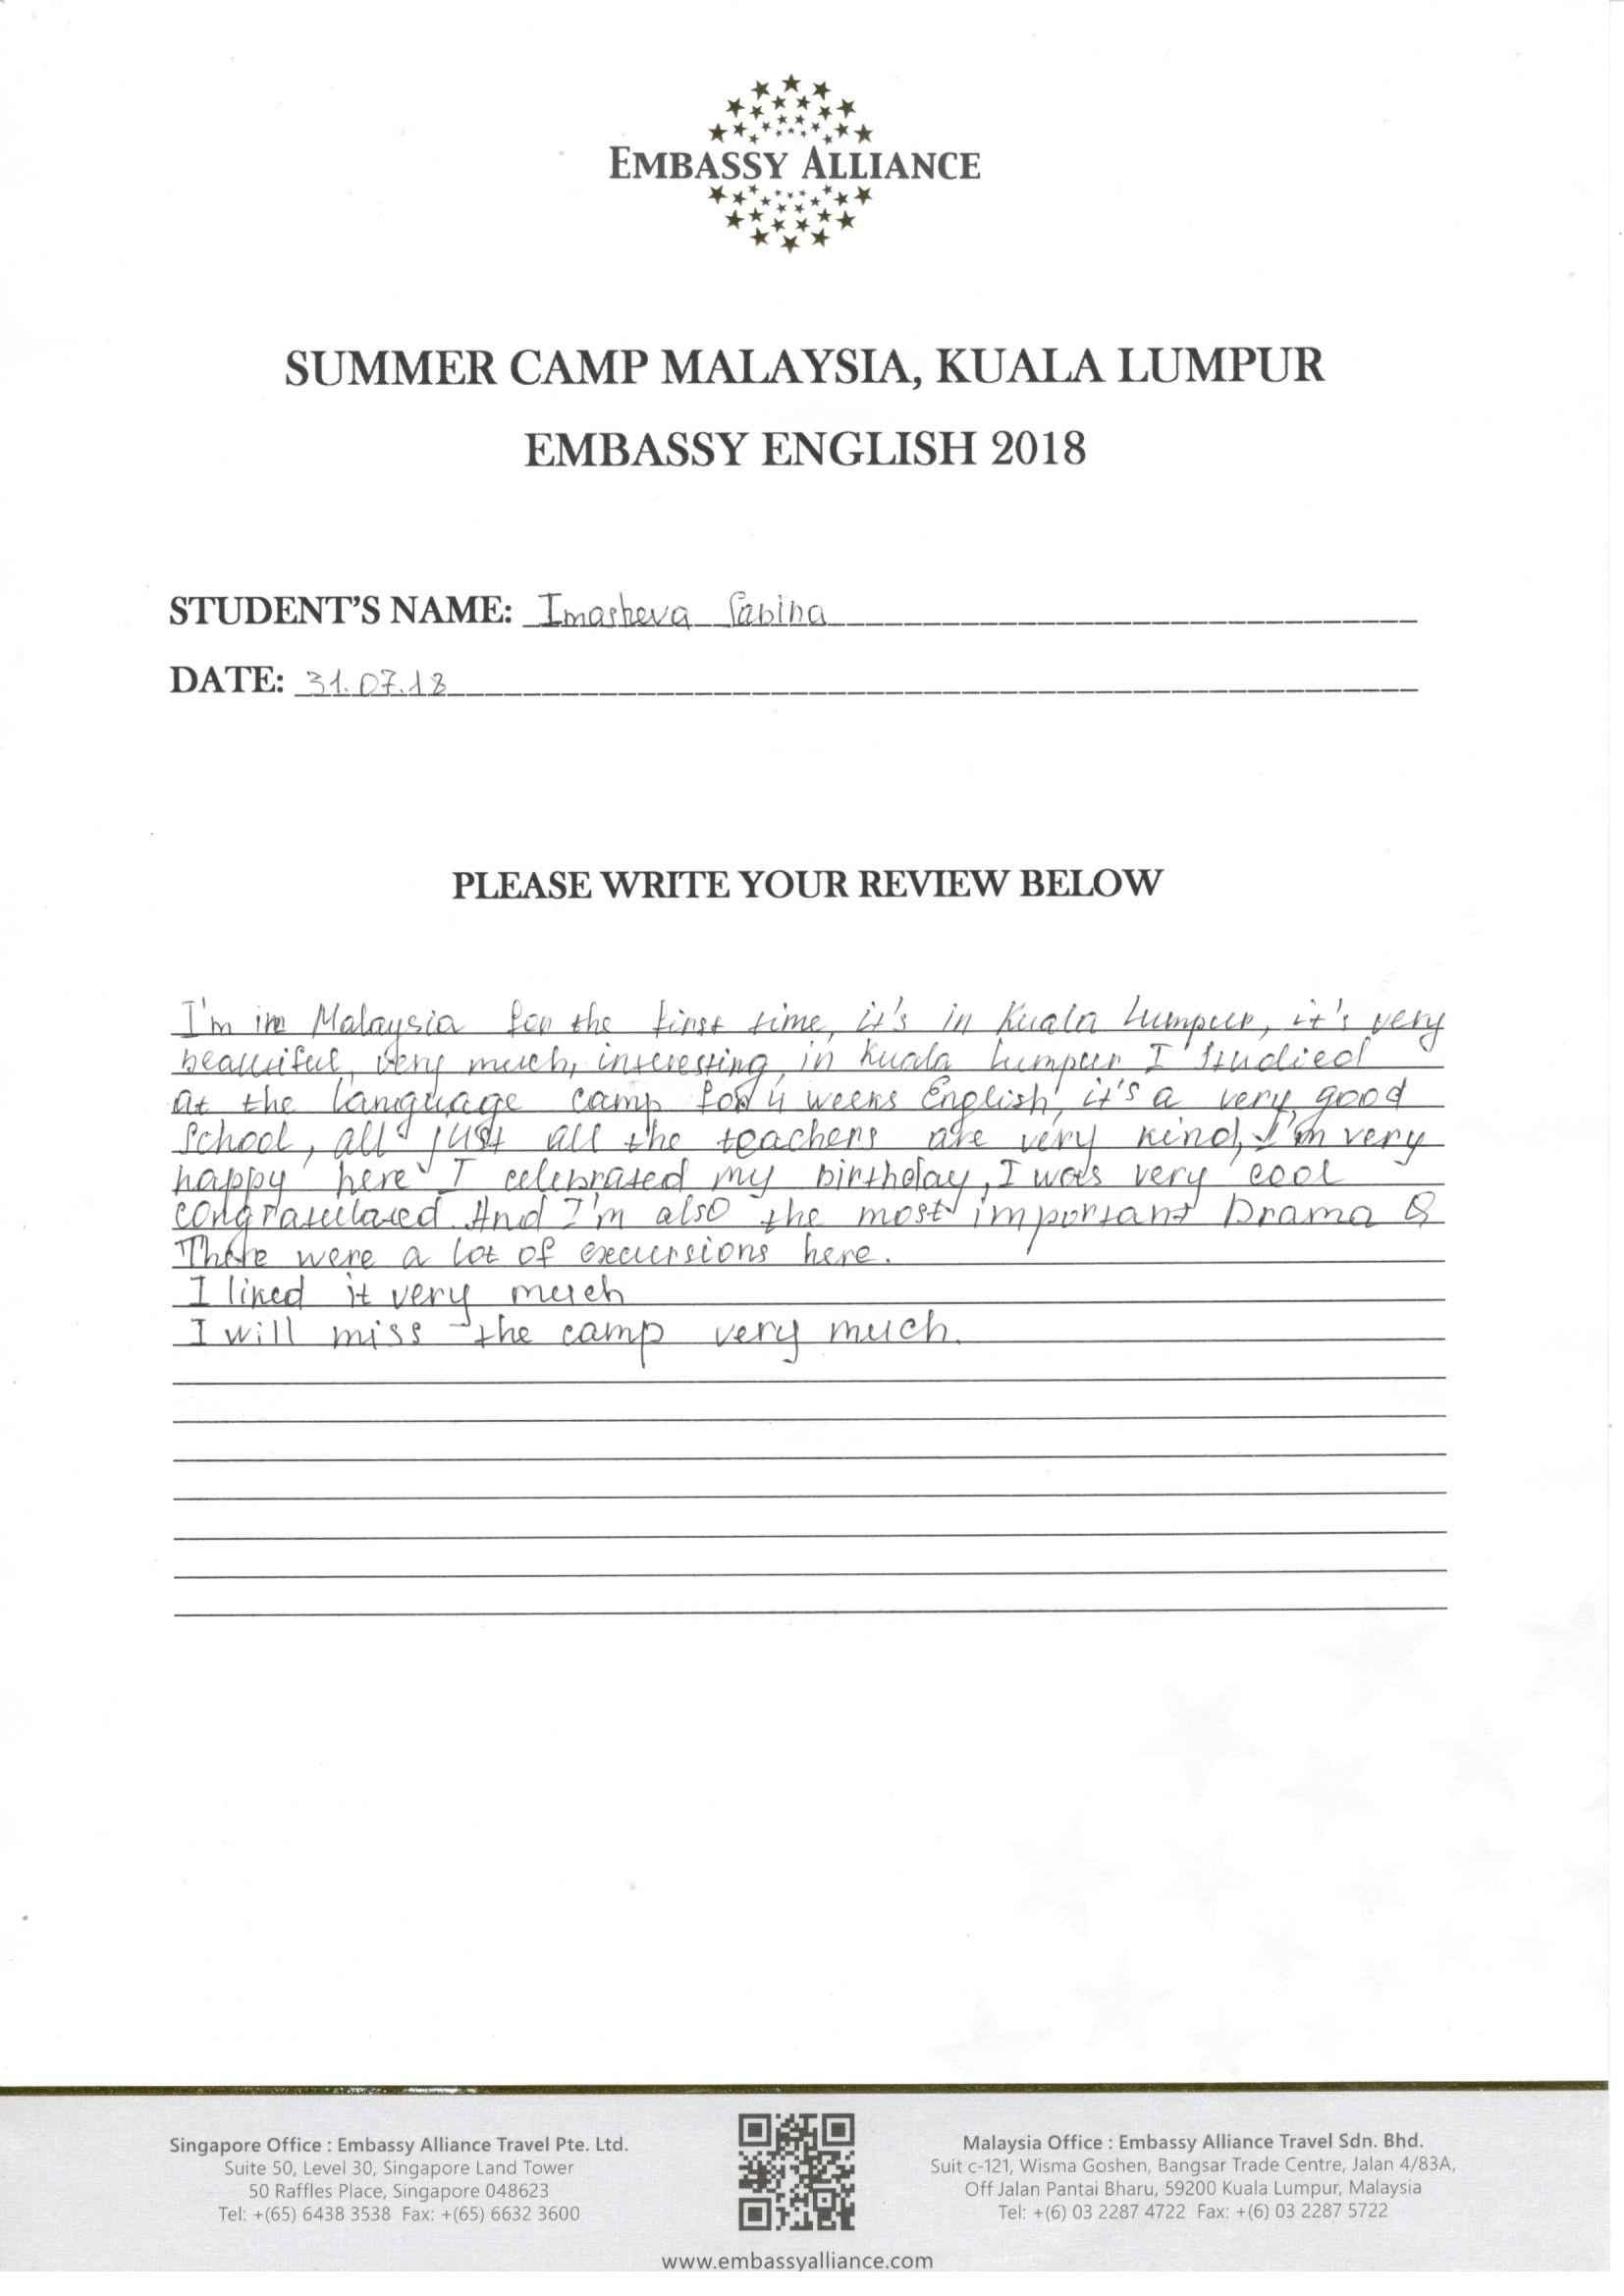 EMBASSY ALLIANCE
SUMMER CAMP MALAYSIA, KUALA LUMPUR
EMBASSY ENGLISH 2018
STUDENT'S NAME: Imasheva Sabina
DATE: 31.07.18
PLEASE WRITE YOUR REVIEW BELOW
I'm in Malaysia for the first time, it's in Kuala Lumpur, it's very
beautiful, very much, interesting, in Kuala Lumpur I studied
at the language camp for 4 weeks English, it's a very good
School, all just all the teachers are very kind, I'm very
happy here I celebrated my birthday, I was very cool
congratulated. And I'm also the most important Drama Q
There were a lot of excursions here.
I liked it very much
I will miss the camp very much.
Singapore Office : Embassy Alliance Travel Pte. Ltd.
Suite 50, Level 30, Singapore Land Tower
50 Raffles Place, Singapore 048623
Tel: +(65) 6438 3538 Fax: +(65) 6632 3600
Malaysia Office : Embassy Alliance Travel Sdn. Bhd.
Suit c-121, Wisma Goshen, Bangsar Trade Centre, Jalan 4/83A,
Off Jalan Pantai Bharu, 59200 Kuala Lumpur, Malaysia
Tel: +(6) 03 2287 4722 Fax: +(6) 03 2287 5722
www.embassyalliance.com